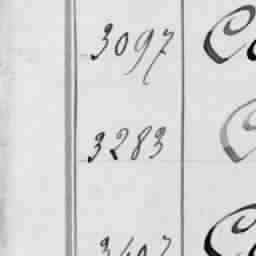 3097
3283